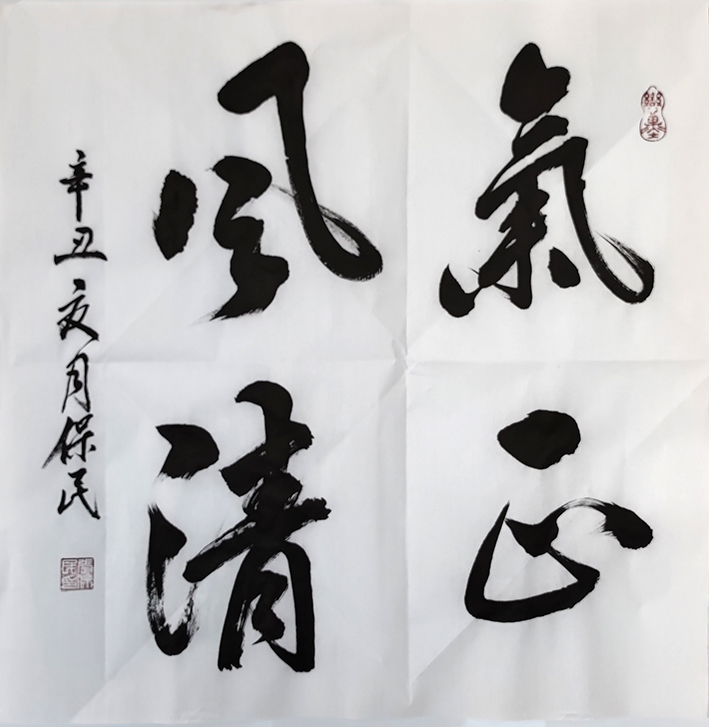 氣正
風清
辛丑亥月保民